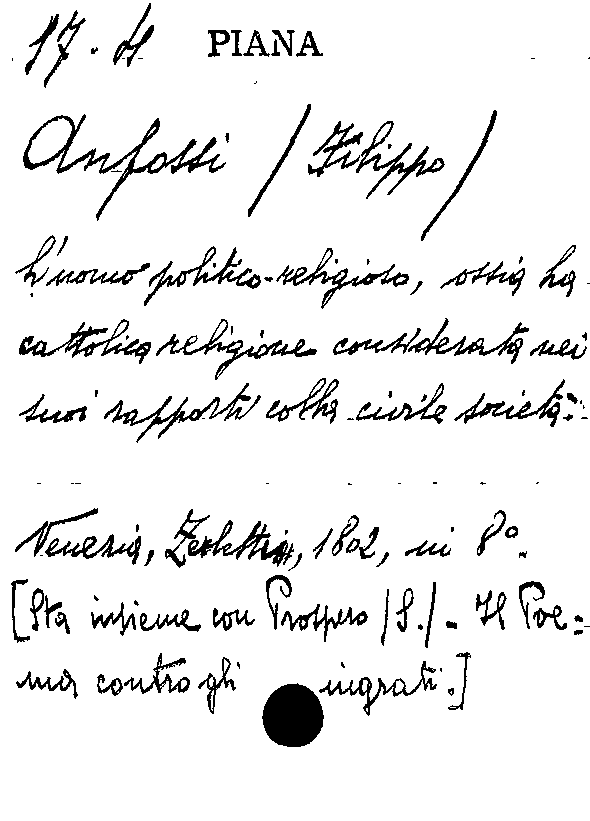 17. H PIANA
Anfossi / Filippo /
L'uomo politico-religioso, ossia la
cattolica religione considerata nei
suoi rapporti colla civile società:
Venezia, Zerletti, 1802, in 8°.
[Sta insieme con Prospero (S.) - Il Poe=
ma contro gli ingrati.]